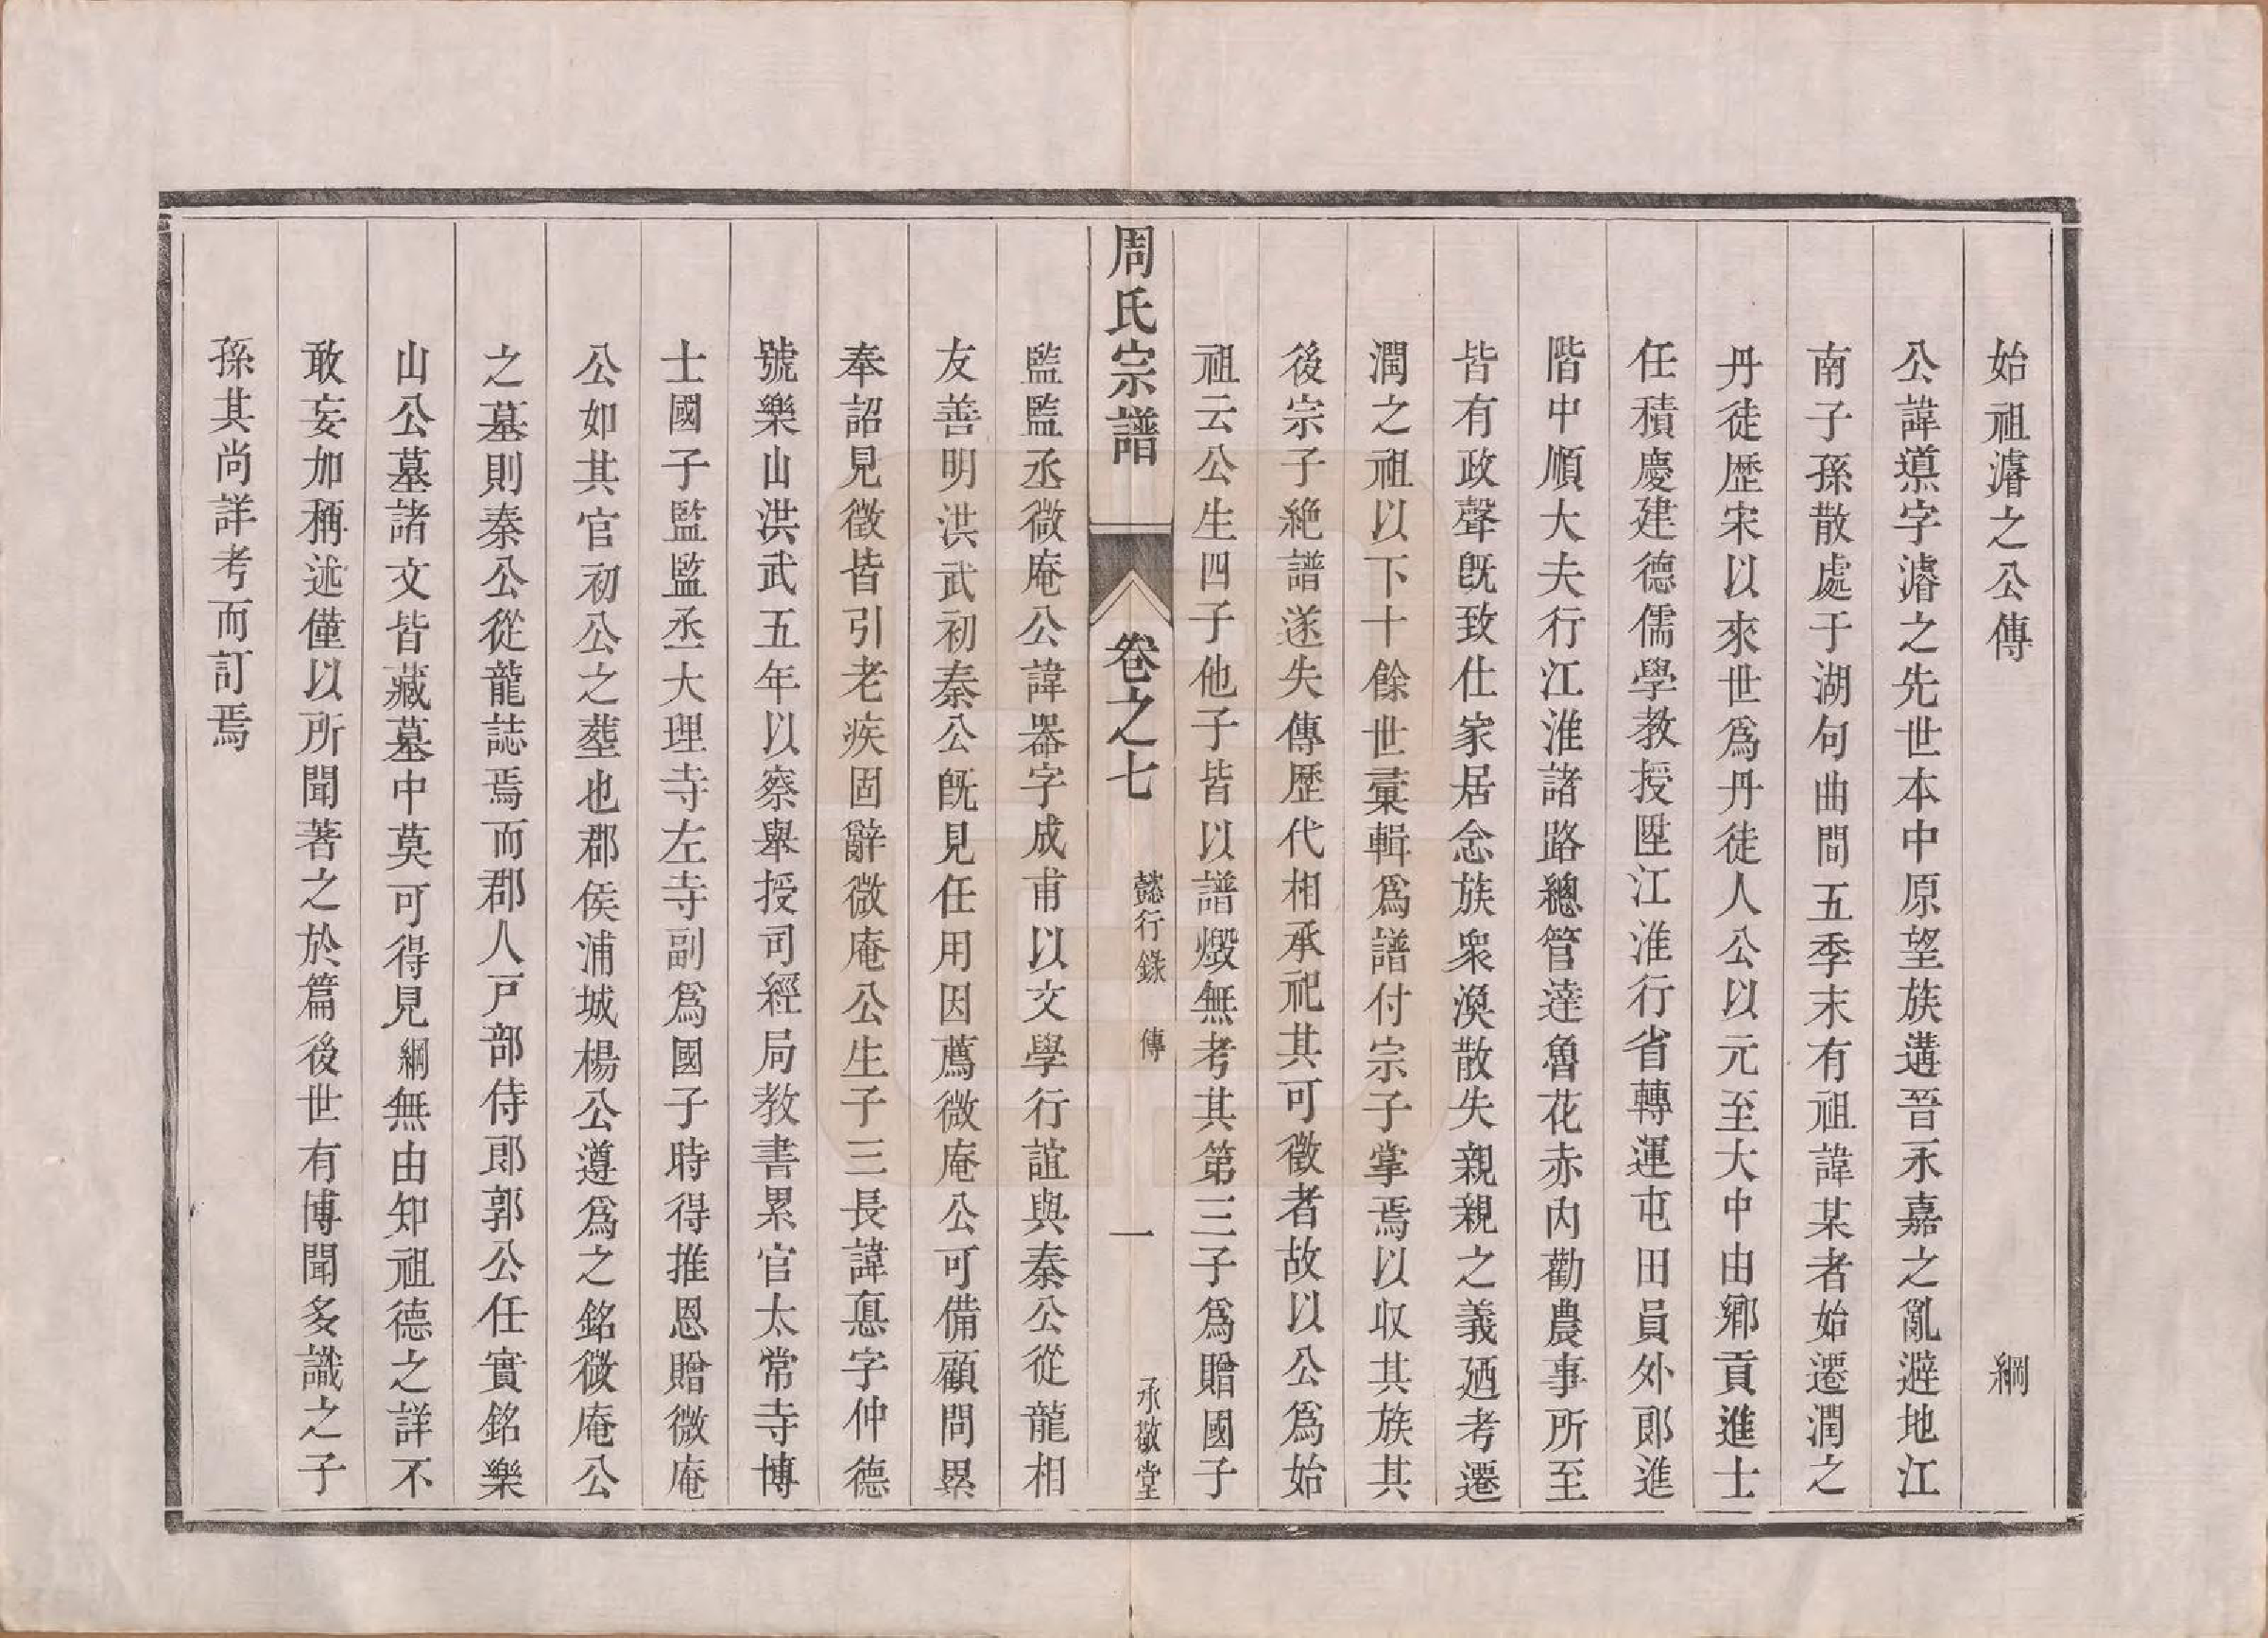 始祖濬之公傳 綱
公諱㵮字濬之先世本中原望族遘晉永嘉之亂避地江
南子孫散處于湖句曲間五季末有祖諱某者始遷潤之
丹徒歷宋以來世爲丹徒人公以元至大中由鄉貢進士
任積慶建德儒學教授陞江淮行省轉運屯田員外郎進
階中順大夫行江淮諸路總管達魯花赤內勸農事所至
皆有政聲旣致仕家居念族衆渙散失親親之義廼考遷
潤之祖以下十餘世彙輯爲譜付宗子掌焉以收其族其
後宗子絕譜遂失傳歷代相承祀其可徵者故以公爲始
祖云公生四子他子皆以譜燬無考其第三子爲贈國子
周氏宗譜 卷之七 懿行錄 傳 一 承敬堂
監監丞微庵公諱器字成甫以文學行誼與秦公從龍相
友善明洪武初秦公旣見任用因薦微庵公可備顧問累
奉詔見徵皆引老疾固辭微庵公生子三長諱惪字仲德
號樂山洪武五年以察舉授司經局教書累官太常寺博
士國子監監丞大理寺左寺副爲國子時得推恩贈微庵
公如其官初公之塟也郡侯浦城楊公遵爲之銘微庵公
之墓則秦公從龍誌焉而郡人戸部侍郎郭公任實銘樂
山公墓諸文皆藏墓中莫可得見綱無由知祖德之詳不
敢妄加稱述僅以所聞著之於篇後世有博聞多識之子
孫其尚詳考而訂焉